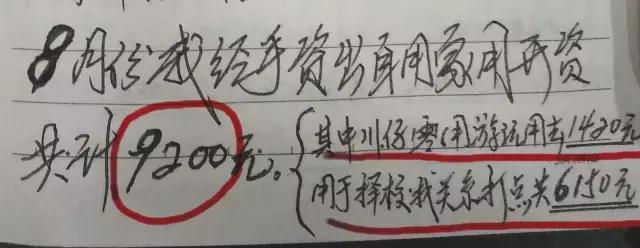 8月份我经手资出自用家用开资
共计9200元。
其中川仔零用游玩用去1420元
用于择校找关系打点共6150元